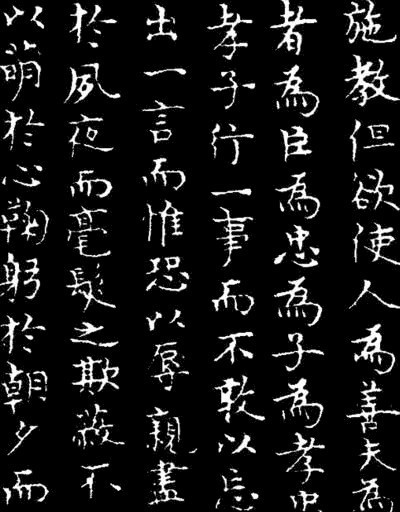 施教但欲使人為善夫為
者為臣為忠為子為孝忠
孝子行一事而不敢以忘
出一言而惟恐以辱親盡
於夙夜而毫髮之欺蔽不
以萌於心鞠躬於朝夕而